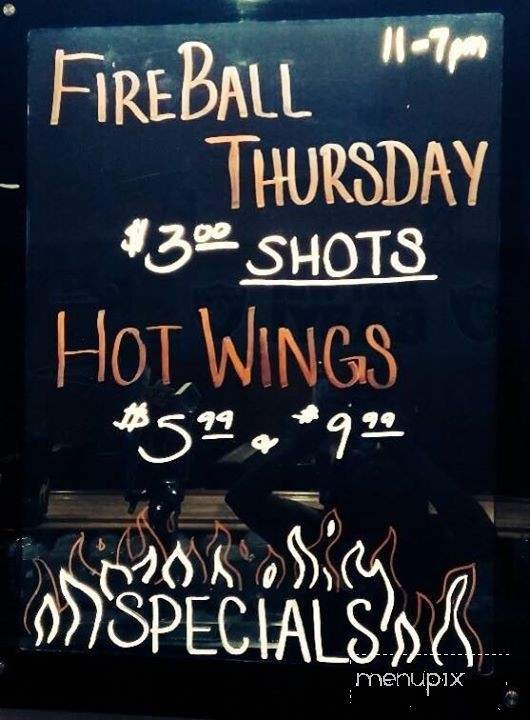 11-7pm
FIREBALL
THURSDAY
$3.00 SHOTS
HOT WINGS
$5.99 & $9.99
SPECIALS
menupix